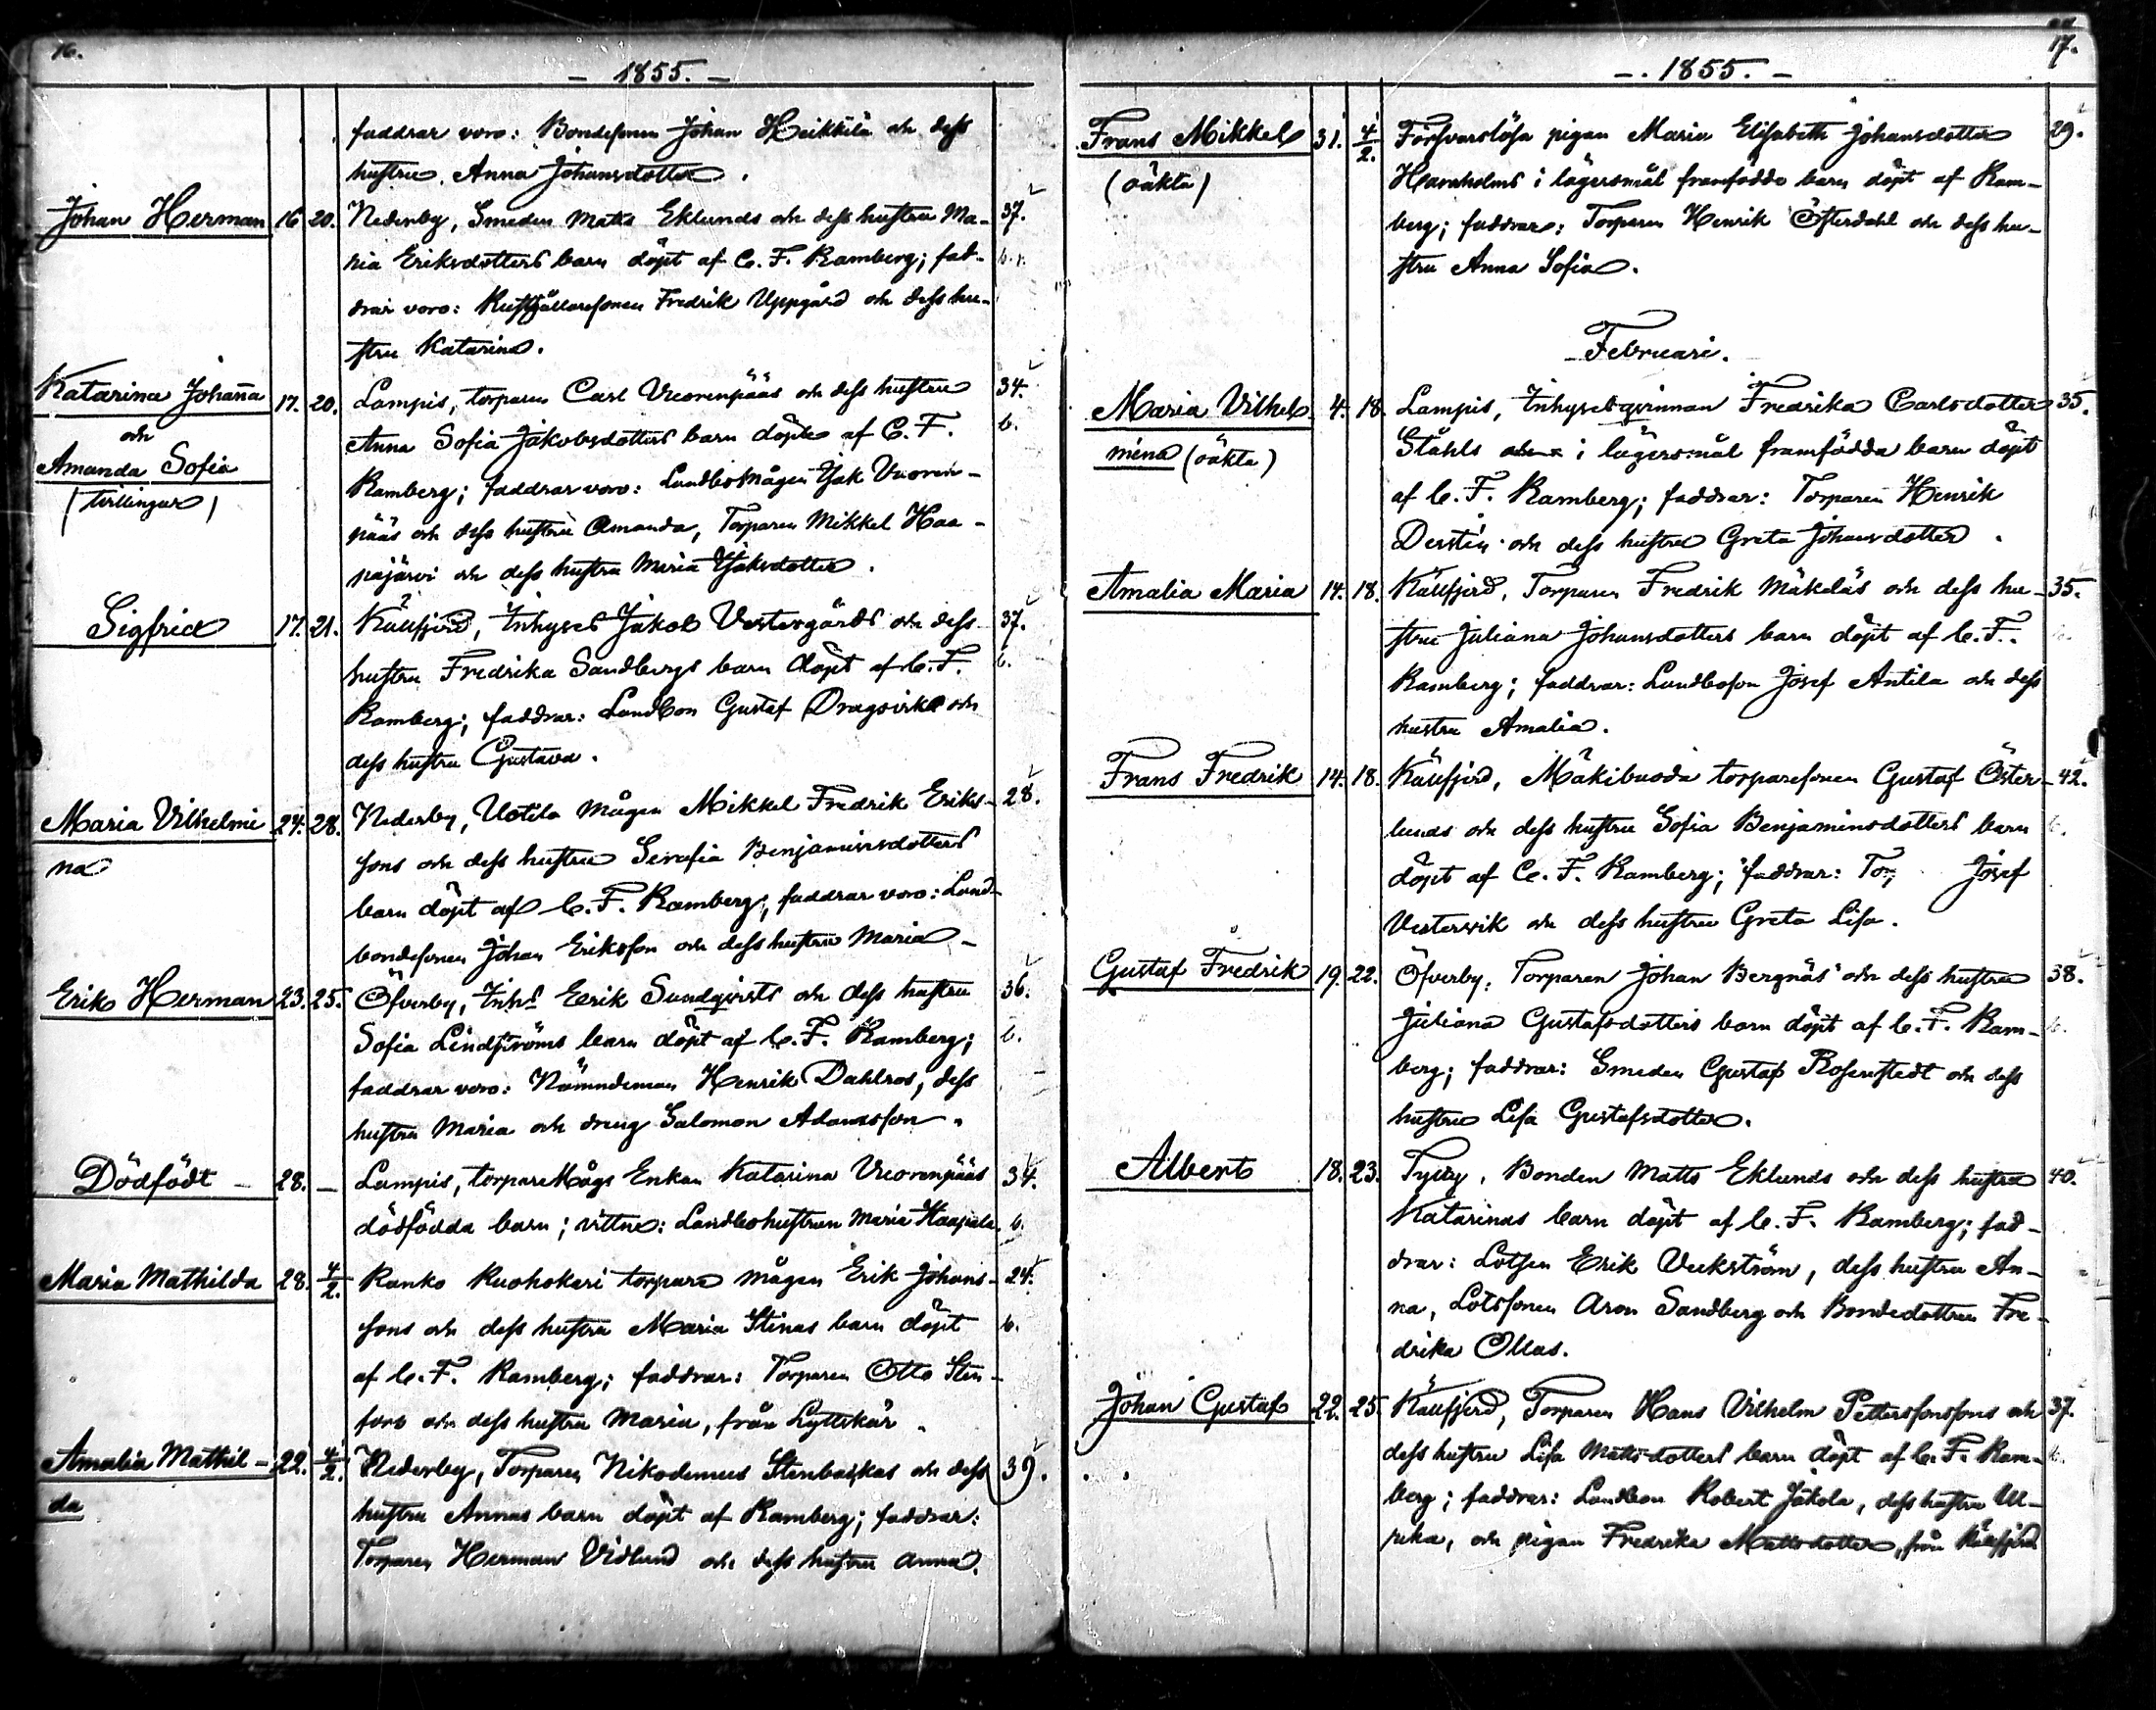 16.
- 1855. -
faddrar voro: Bondesonen Johan Heikkilä och dess
hustru Anna Johansdotter.
Johan Herman 16 20. Nederby, Smeden Matts Eklunds och dess hustru Ma- 37.
ria Eriksdotters barn döpt af C. F. Ramberg; fad-
drar voro: Rusthållaresonen Fredrik Uppgård och dess hu-
stru Katarina.
Katarina Johanna 17. 20. Lampis, torparen Carl Vuorenpääs och dess hustru 34.
och Anna Sofia Jakobsdotters barn döpte af C. F. b.
Amanda Sofia Ramberg; faddrar voro: Landbomågen Isak Vuoren-
(tvillingar) pääs och dess hustru Amanda, Torparen Mikkel Haa-
pajärvi och dess hustru Maria Isaksdotter.
Sigfrid 17. 21. Kållfjerd, Inhyses Jakob Vestergårds och dess 37.
hustru Fredrika Sandbergs barn döpt af C. F. b.
Ramberg; faddrar: Landbon Gustaf Dragsvik och
dess hustru Gustava.
Maria Vilhelmi 24. 28. Nederby, Uotila mågen Mikkel Fredrik Eriks- 28.
na sons och dess hustru Serafia Benjaminsdotters
barn döpt af C. F. Ramberg; faddrar voro: Land-
bondesonen Johan Eriksson och dess hustru Maria
Erik Herman 23. 25. Öfverby, Inhs Eerik Sundqvists och dess hustru 36.
Sofia Lindströms barn döpt af C. F. Ramberg; b.
faddrar voro: Nämndeman Henrik Dahlros, dess
hustru Maria och dreng Salomon Adamsson.
Dödfödt - 28. - Lampis, torpare Mågs Enkan Katarina Vuorenpääs 34.
dödfödda barn; vittne: Landbohustrun Maria Haapala. b.
Maria Mathilda 28. 4/2. Ranko Ruohokari torpare mågen Erik Johans- 24.
sons och dess hustru Maria Stinas barn döpt b.
af C. F. Ramberg; faddrar: Torparen Otto Sten-
fors och dess hustru Maria, från Lyttskär.
Amalia Mathil- 22. 4/2. Nederby, Torparen Nikodemus Stenbackas och dess 39.
da hustru Annas barn döpt af Ramberg; faddrar:
Torparen Herman Vidlund och dess hustru Anna.
17.
- 1855. -
Frans Mikkel 31. 4/2. Försvarslösa pigan Maria Elisabeth Johansdotter 29.
(oäkta) Hamnholms i lägersmål framfödde barn döpt af Ram-
berg; faddrar: Torparen Henrik Österdahl och dess hu-
stru Anna Sofia.
Februari.
Maria Vilhel 4. 18. Lampis, Inhysesqvinnan Fredrika Carlsdotter 35.
mina (oäkta) Ståhls i lägersmål framfödda barn döpt
af C. F. Ramberg; faddrar: Torparen Henrik
och dess hustru Greta Johansdotter.
Amalia Maria 14. 18. Kållfjerd, Torparen Fredrik Mäkeläs och dess hu- 35.
stru Juliana Johansdotters barn döpt af C. F.
Ramberg; faddrar: Landboson Josef Antila och dess
hustru Amalia.
Frans Fredrik 14. 18. Kållfjerd, Mäkibuoda torparesonen Gustaf Öster- 42.
lunds och dess hustru Sofia Benjaminsdotters barn b.
döpt af C. F. Ramberg; faddrar: To; Josef
Vestervik och dess hustru Greta Lisa.
Gustaf Fredrik 19. 22. Öfverby, Torparen Johan Bergnäs och dess hustru 38.
Juliana Gustafsdotters barn döpt af C. F. Ram- b.
berg; faddrar: Smeden Gustaf Rosenstedt och dess
hustru Lisa Gustafsdotter.
Albert 18. 23. Tysby, Bonden Matts Eklunds och dess hustru 40.
Katarinas barn döpt af C. F. Ramberg; fad-
drar: Lotsen Erik Veckström, dess hustru An-
na, Lotssonen Aron Sandberg och Bondedottren Fre-
drika Ollas.
Johan Gustaf 22. 25. Kållfjerd, Torparen Hans Vilhelm Petterssonssons och 37.
dess hustru Lisa Mattsdotters barn döpt af C. F. Ram- b.
berg; faddrar: Landbon Robert Jakola, dess hustru Ul-
rika, och pigan Fredrika Mattsdotter, från Kållfjerd